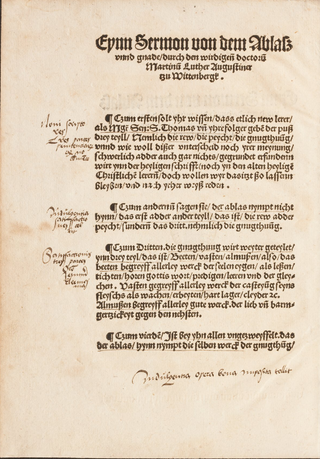 Eynn Sermon von dem Ablaß
vnnd gnade/durch den wirdigenn doctorū
Martinū Luther Augustiner
tzu Wittenbergk.
¶ Czum ersten solt yhr wissen/dass etlich new lerer/
als Mgr Sen: S. Thomas vñ yhre folger gebē der puß
drey teyll/ Nemlich die rew/die peycht/die gnugthuūg/
vnnd wie woll disser vnterscheid noch yrer meynung/
schwerlich adder auch gar nichts/gegrundet erfunden
wirt ynn der heyligen schrifft/noch yn den alten heyligē
Christlichē lerern/doch wollen wyr das itzt ßo lassenn
bleyben/vnd nach yrher weyß reden.
¶ Czum andernn sagen sie/der ablas nympt nicht
hynn/das erst adder ander teyll/das ist/die rew adder
peycht/sundern das dritt. nehmlich die gnugthuūg.
¶ Czum Dritten. die gnugthuung wirt weyter geteylet/
ynn drey teyl/das ist/Beeten/vasten/almußen/also/das
beeten begreyff allerley werck der selen eygen/als leßen/
tichten/horen gottis wort/predigen/leeren vnd der gley-
chen. Vasten begreyff allerley werck der casteyūg seyns
fleyschs als wachen/erbeyten/hart lager/cleyder &c.
Almußen begreyff allerley gute werck der lieb vñ barm-
hertzickeyt gegen den nehsten.
¶ Czum vierdē/Ist bey yhn allen vngetzweyffelt. das
der ablas/hynn nympt die selben werck der gnugthūg/
opera bona